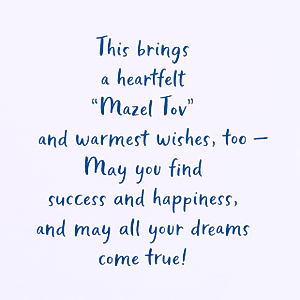 This brings
a heartfelt
“Mazel Tov”
and warmest wishes, too —
May you find
success and happiness,
and may all your dreams
come true!